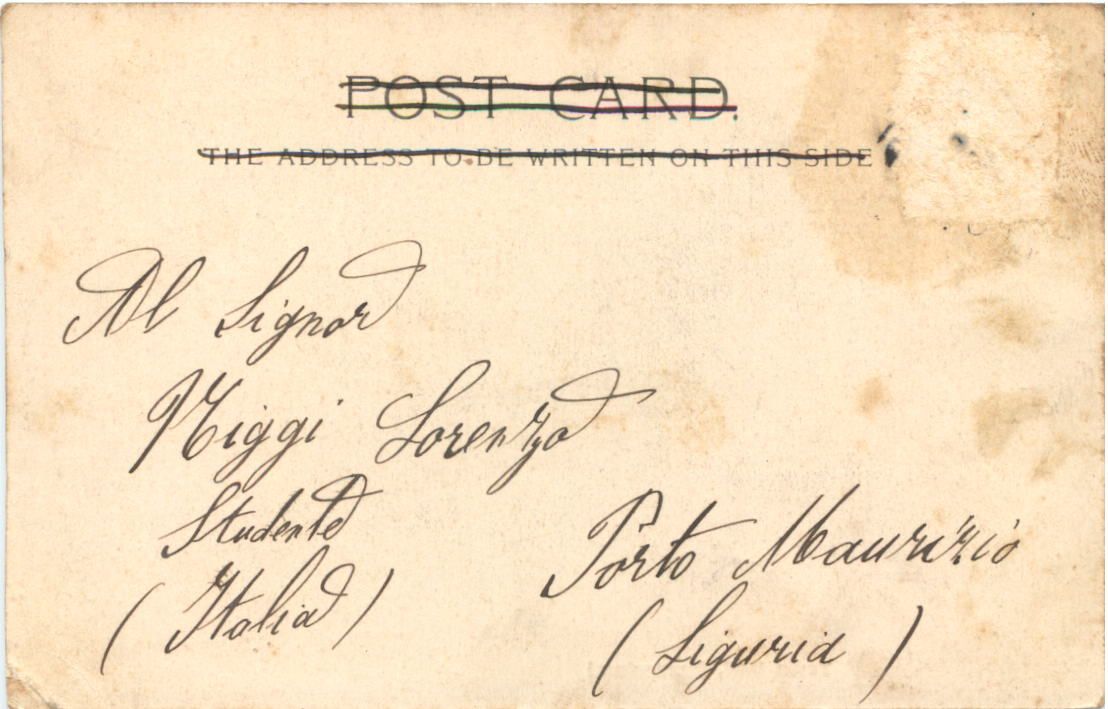 POST CARD.
THE ADDRESS TO BE WRITTEN ON THIS SIDE
Al Signor
Niggi Lorenzo
Studente
(Italia)
Porto Maurizio
(Liguria)